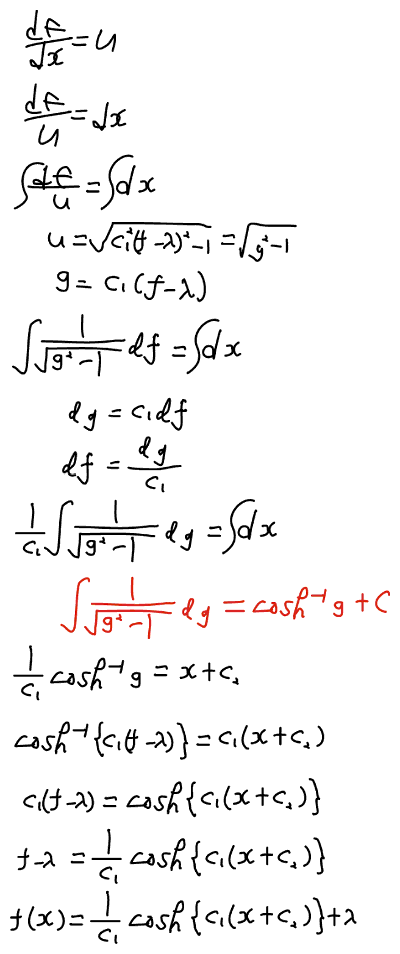 df/dx = u
df/u = dx
∫ df/u = ∫ dx
u = √(c₁²(f-λ)²-1) = √(g²-1)
g = c₁(f-λ)
∫ 1/√(g²-1) df = ∫ dx
dg = c₁df
df = dg/c₁
1/c₁ ∫ 1/√(g²-1) dg = ∫ dx
∫ 1/√(g²-1) dg = cosh⁻¹ g + C
1/c₁ cosh⁻¹ g = x + c₂
cosh⁻¹{c₁(f-λ)} = c₁(x+c₂)
c₁(f-λ) = cosh{c₁(x+c₂)}
f-λ = 1/c₁ cosh{c₁(x+c₂)}
f(x) = 1/c₁ cosh{c₁(x+c₂)}+λ